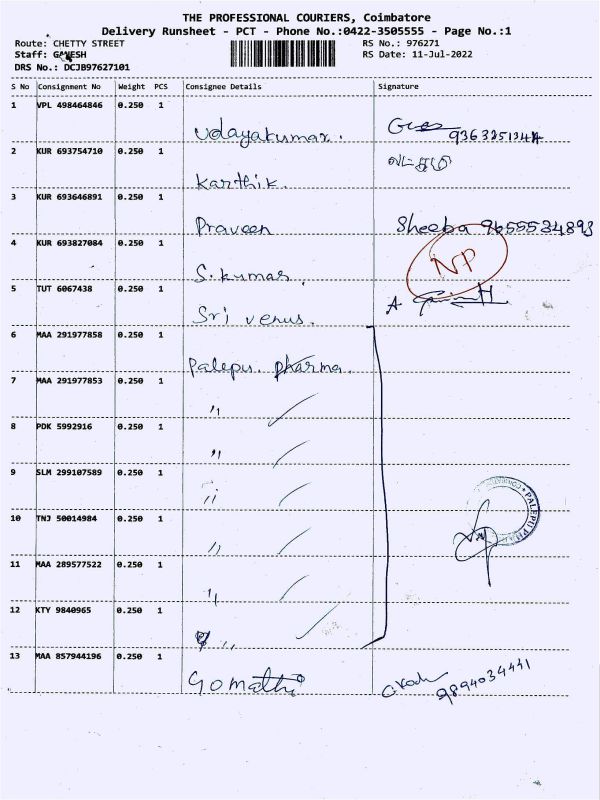 THE PROFESSIONAL COURIERS, Coimbatore
Delivery Runsheet - PCT - Phone No.:0422-3505555 - Page No.:1
Route: CHETTY STREET
RS No.: 976271
Staff: GANESH
RS Date: 11-Jul-2022
DRS No.: DCJB97627101
S No Consignment No Weight PCS Consignee Details Signature
1 VPL 498464846 0.250 1
Udayakumar.
2 KUR 693754710 0.250 1
Karthik.
3 KUR 693646891 0.250 1
Praveen Sheeba 9655534893
4 KUR 693827084 0.250 1
NP
S. kumar.
5 TUT 6067438 0.250 1
Sri venus.
6 MAA 291977858 0.250 1
Palepu. pharma.
7 MAA 291977853 0.250 1
"
8 PDK 5992916 0.250 1
"
9 SLM 299107589 0.250 1
"
PALEPU PH
10 TNJ 50014984 0.250 1
"
11 MAA 289577522 0.250 1
"
12 KTY 9840965 0.250 1
"
13 MAA 857944196 0.250 1
Gomathi 9894034441